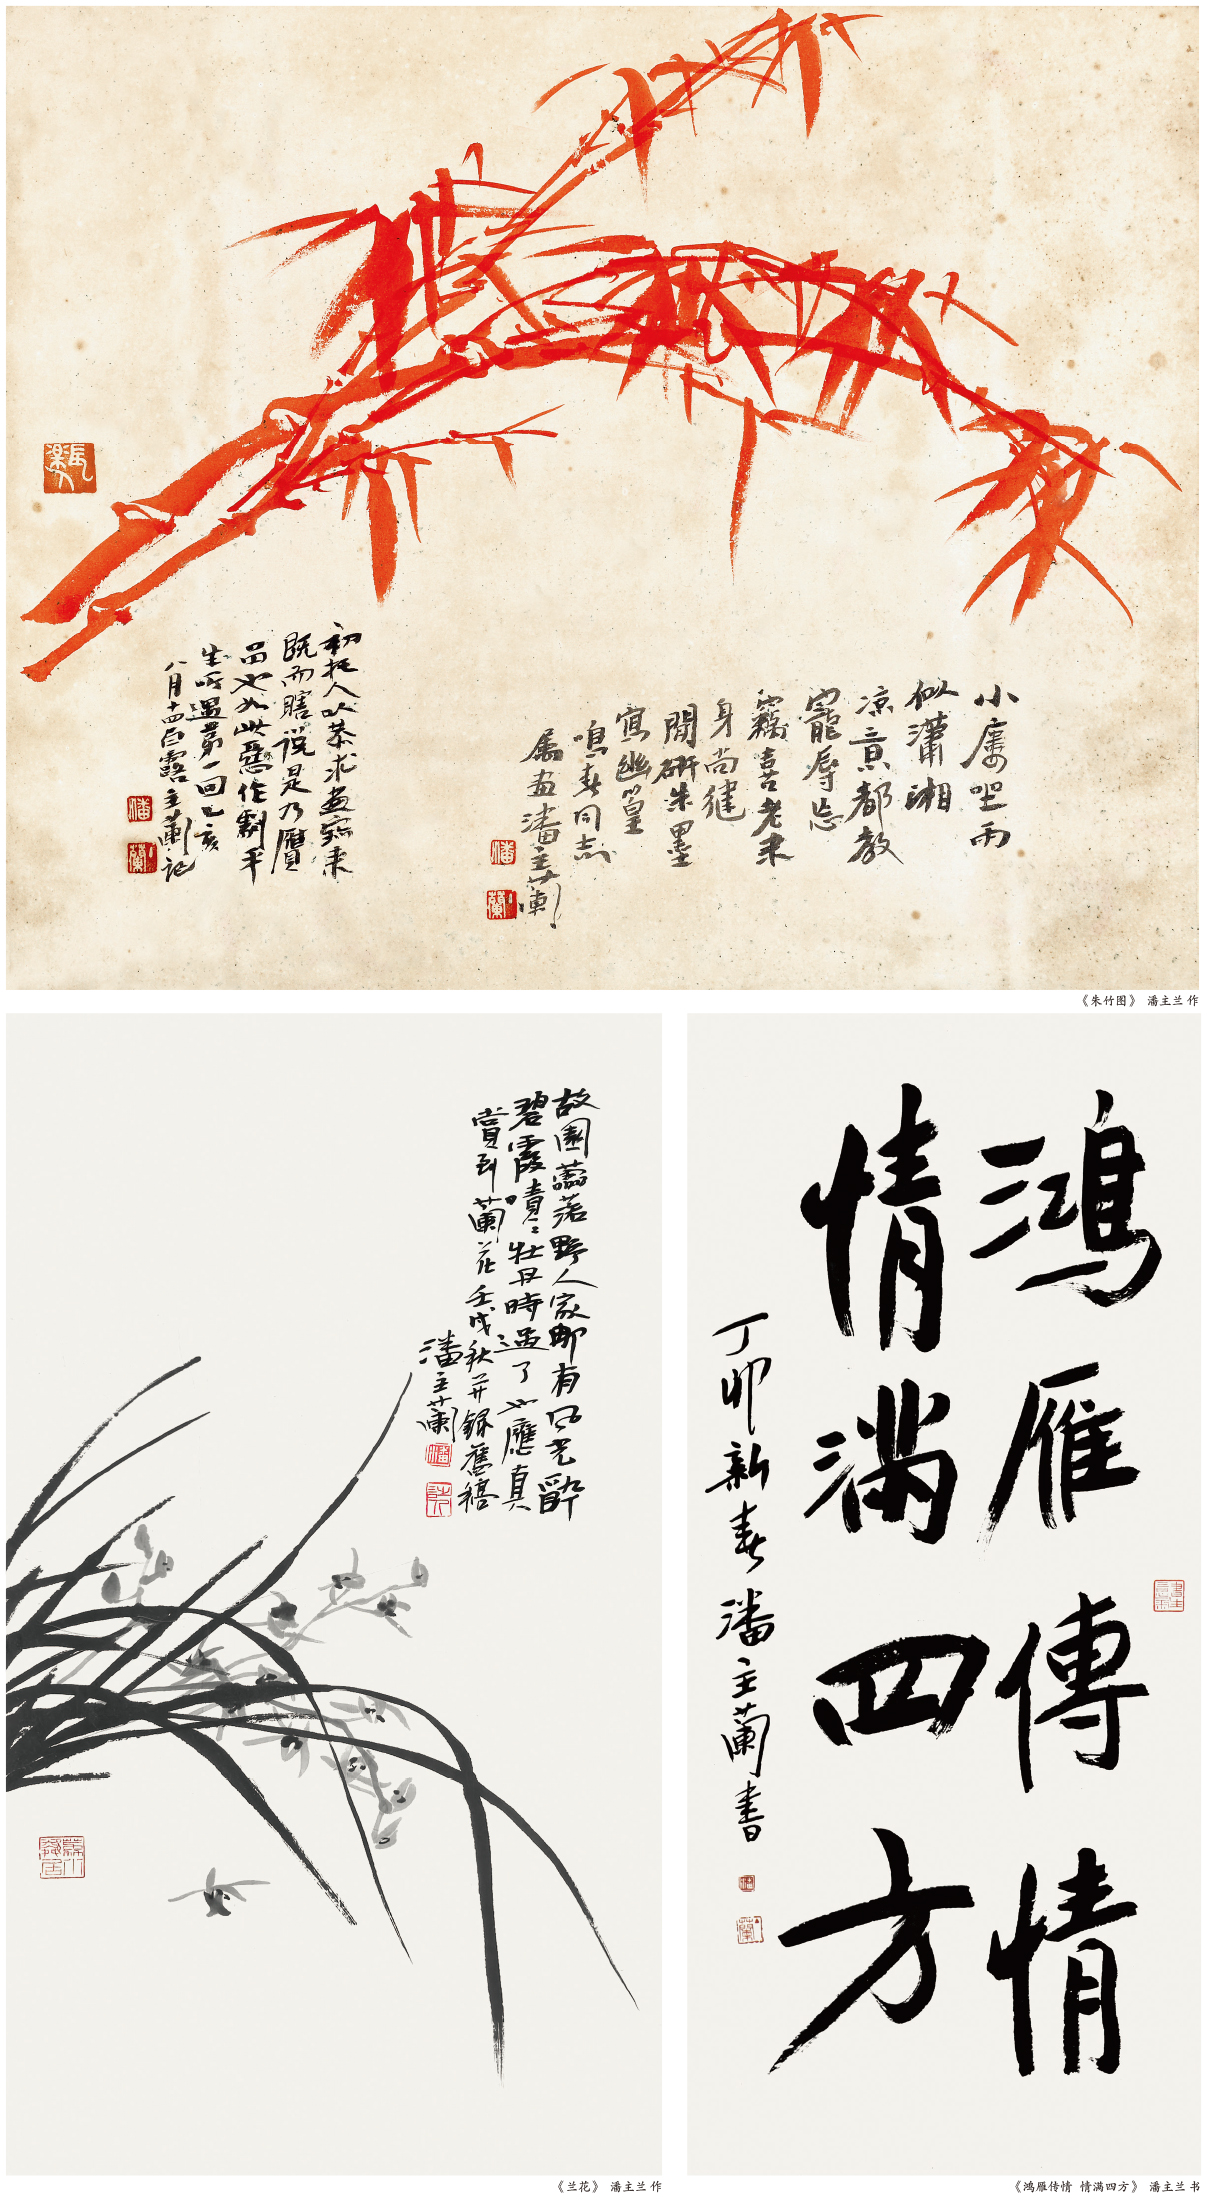 小廔坐雨
似瀟湘
凉意都教
寵辱忘
竊喜老来
身尚健
閒研朱墨
寫幽篁
鳴春同志
属畫潘主蘭
初托人以茶求畫寫来
既而瞎說是乃贋
品也如此惡作劇平
生所遇第一回乙亥
八月十四白露主蘭記
《朱竹图》 潘主兰 作
故園蕭落野人家却有風光醉
碧霞嘖嘖牡丹時過了也應真
賞到蘭花壬戌秋并録舊稿
潘主蘭
《兰花》 潘主兰 作
鴻雁傳情
情满四方
丁卯新春潘主蘭書
《鸿雁传情 情满四方》 潘主兰 书